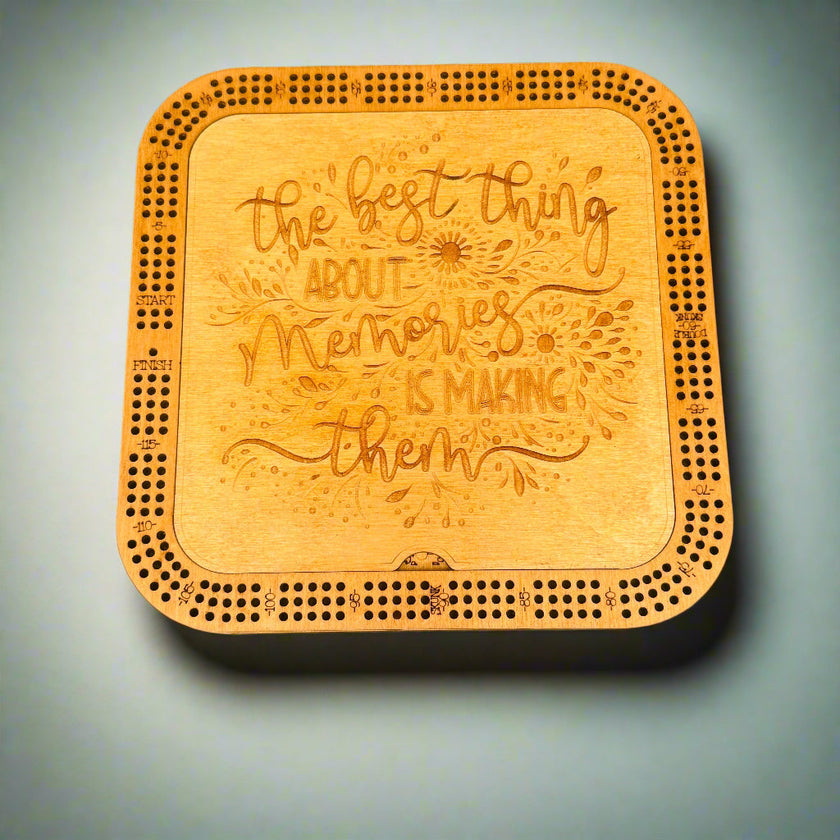 the best thing
ABOUT
Memories
IS MAKING
them
START
-5-
-10-
-50-
-55-
DOUBLE
SKUNK
-60-
-65-
-70-
-75-
-80-
-85-
SKUNK
-90-
-95-
-100-
-105-
-110-
-115-
FINISH